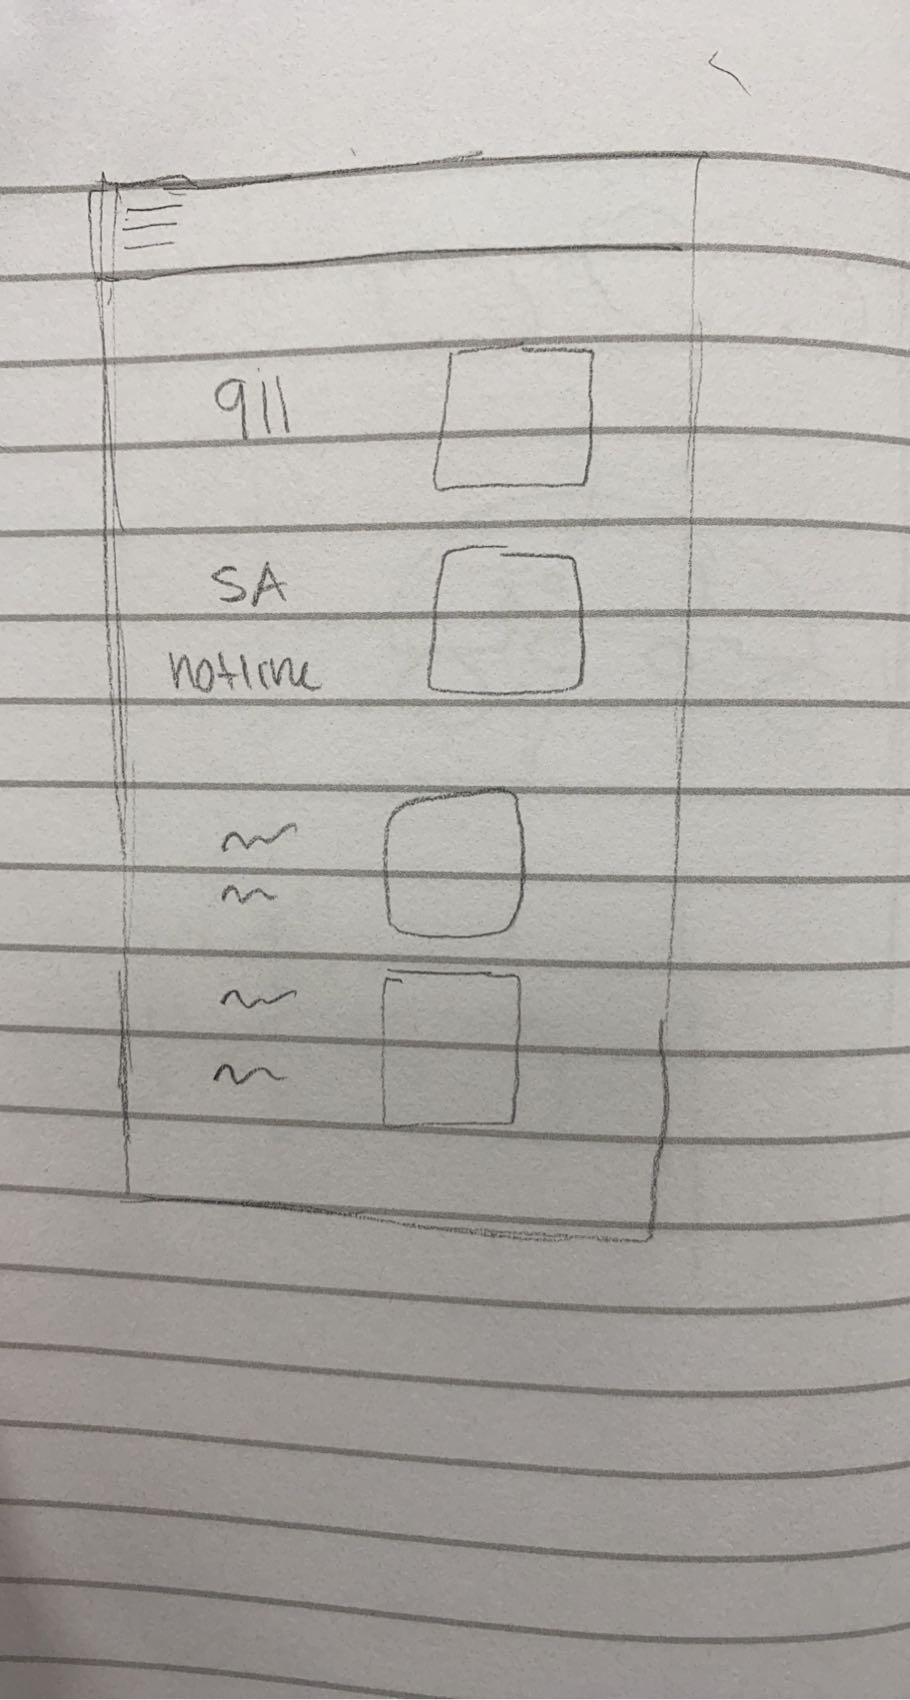 911
SA
hotline